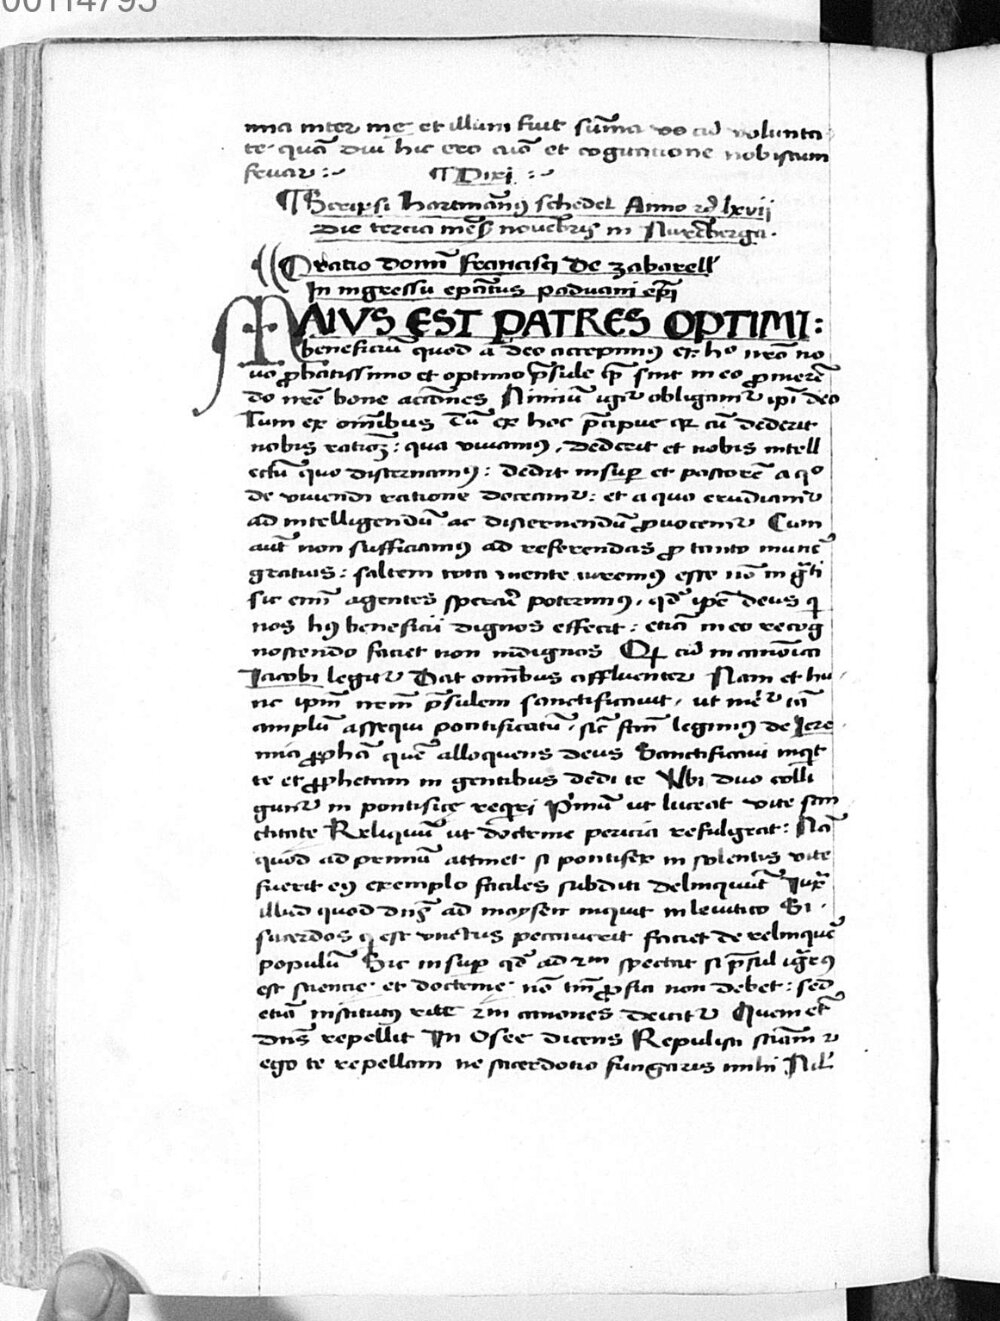 00114795
mia inter me et illum fuit sum̄a vo cū volunta
te quā diu hic ero aīo et cogitatione nobiscum
feram :~ ¶ Dixi :~
¶ Scripsi Hartman̄9 schedel Anno lxvij
Die tercia mēs̄ novēbris in Nurēberga.
Oratio domi francisci de zabarell
In ingressu ep̄atus paduani ep̄i
MAIVS EST PATRES OPTIMI:
beneficiū quod a deo accepim9 ex hͦ nrō no
uo ꝓbatissimo et optimo p̄sule qͣ sint in eo ꝓmerē
do nrē bone acciones Nimiū igit̄ obligamur ipi deo
Tum ex om̄ibus Tū ex hoc p̄cipue qꝫ cū dederit
nobis rationē: qua viuam9, dederit et nobis intell
ectū quo discernam9: dedit insuꝑ et pastorē a qͦ
de viuendi ratione doceamur: et a quo erudiamur
ad intelligendū ac discernendū ꝓuocemur Cum
aut̄ non sufficiam9 ad referendas ꝓ tanto munē
gratias: saltem tota mente curem9 esse nō ingͣti
sic enī agentes sperarē poterim9, qd̄ ipē deus qͥ
nos h9 beneficii dignos effecit: etiā in eo recog
noscendo faciet non indignos Qꝫ cū in canōica
Iacobi legitur Dat om̄ibus affluenter Nam et hu
nc ipm̄ nrm̄ p̄sulem sanctificauit, ut mēr tā
amplū assequi pontificatū, sic̄ scdm̄ legim9 de Iere
mia ꝓphā quē alloquens deus Sanctificaui inqͥt
te et ꝓphetam in gentibus dedi te Vbi duo colli
gunt̄ in pontifice reqͥri Pͥmū ut luceat vite san
ctitate Reliquū ut doctrine pericia refulgeat: Nā
quod ad primū attinet si pontifex in solentis vite
fuerit ei9 exemplo faciles subditi delinquūt Iuxͣ
illud quod dn̄s ad moysen inquit in leuitico Si
sacerdos qͥ est vnctus peccauerit faciet delinquē
populū Sic insuꝑ qd̄ ad 2m spectat si p̄sul ignar9
est sciencie et doctrine nō tm̄ ꝓfici non debet: sed
etiā institut9 rite 2m canones deicitur Quem et
dn̄s repellit In Osee dicens Repulisti sciam̄ et
ego te repellam ne sacerdotio fungaris mihi Nil